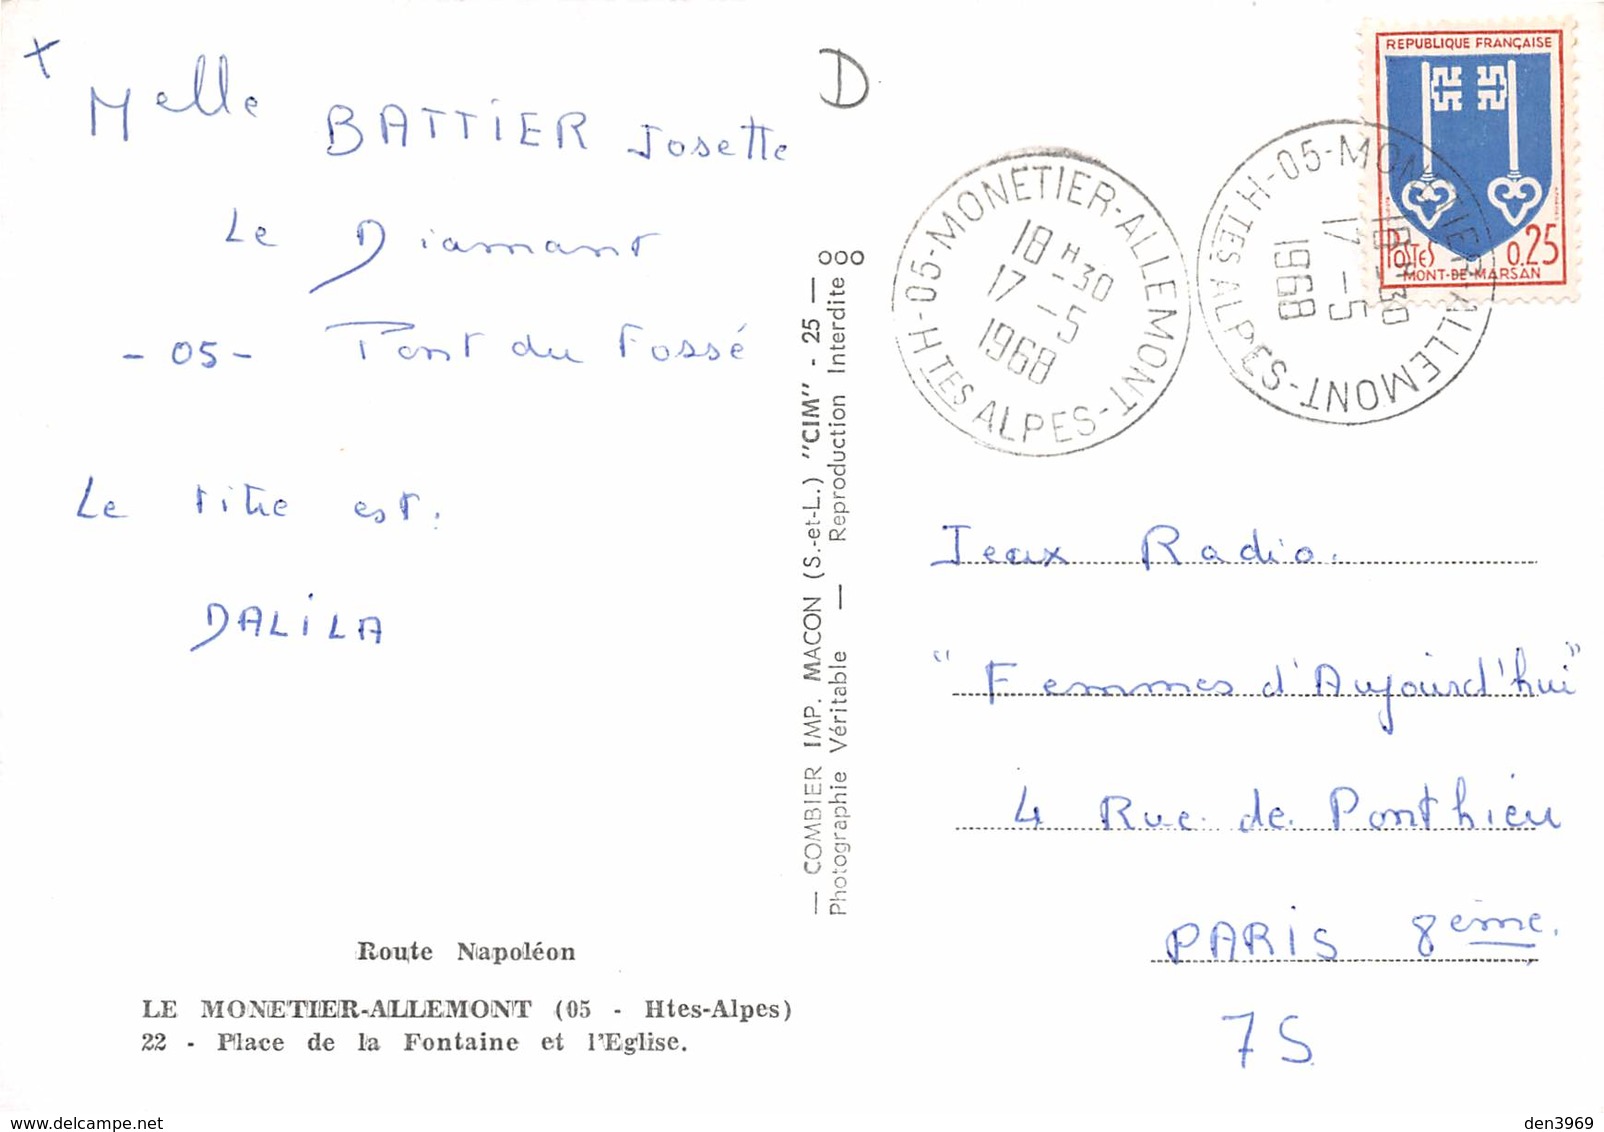 x
Melle BATTIER Josette
Le Diamant
-05- Pont du Fossé
Le titre est:
DALILA
Route Napoléon
LE MONETIER-ALLEMONT (05 - Htes-Alpes)
22 - Place de la Fontaine et l'Eglise.
D
— COMBIER IMP. MACON (S.-et-L.) "CIM" - 25 —
Photographie Véritable — Reproduction Interdite
H-05-MONETIER-ALLEMONT-
HTES ALPES-
18H30
17 -5
1968
H-05-MONETIER-ALLEMONT-
HTES ALPES-
18H30
17 -5
1968
REPUBLIQUE FRANÇAISE
POSTES 0.25
MONT-DE-MARSAN
Jeux Radio.
"Femmes d'Aujourd'hui"
4 Rue de Ponthieu
PARIS 8eme.
75
www.delcampe.net
den3969